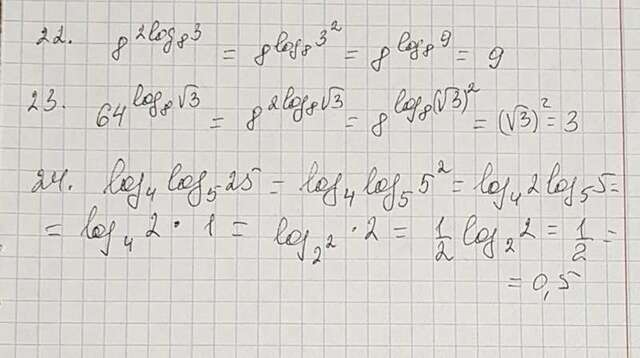 22. 8^{2log_8 3} = 8^{log_8 3^2} = 8^{log_8 9} = 9
23. 64^{log_8 √3} = 8^{2log_8 √3} = 8^{log_8 (√3)^2} = (√3)^2 = 3
24. log_4 log_5 25 = log_4 log_5 5^2 = log_4 2 log_5 5 =
= log_4 2 · 1 = log_{2^2} · 2 = 1/2 log_2 2 = 1/2 =
= 0,5